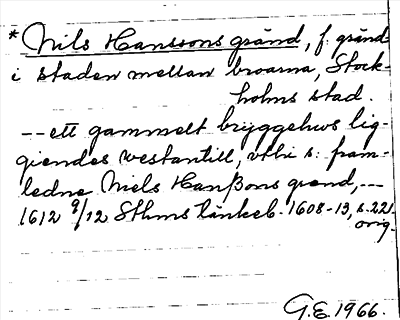 * Nils Hanssons gränd, f. gränd
i staden mellan broarna, Stock-
holms stad.
-- ett gammelt bryggehws lig-
giendes vestantill, vthi s: fram-
ledne Niels Hanßons grend, --
1612 9/12 Sthms tänkeb. 1608-13, s. 221.
orig.
G.E. 1966.